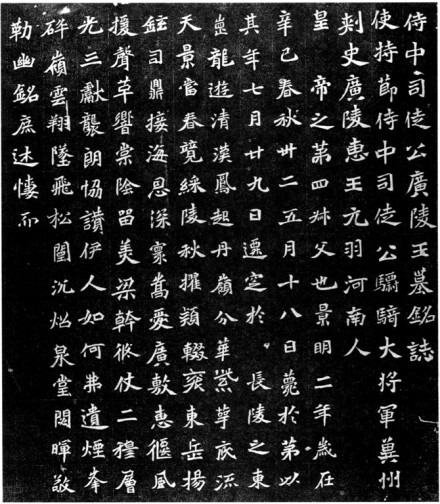 侍中司徒公廣陵王墓銘誌
使持節侍中司徒公驃騎大將軍冀州
刺史廣陵惠王元羽河南人
皇帝之第四叔父也景明二年歲在
辛巳春秋卅二五月十八日薨於第以
其年七月廿九日遷窆於長陵之東
崗龍遊清漢鳳起丹嶺分華紫萼底流
天景當春競綵陵秋擢穎輟袞東岳揚
鉉司鼎接海恩深褰嵩愛廣敷惠偃風
援聲革響棠陰留美梁幹攸仗二穆層
光三獻襲朗協讚伊人如何弗遺煙峯
碎嶺雲翔墜飛松闈沉炤泉堂閟暉敬
勒幽銘庶述悽而